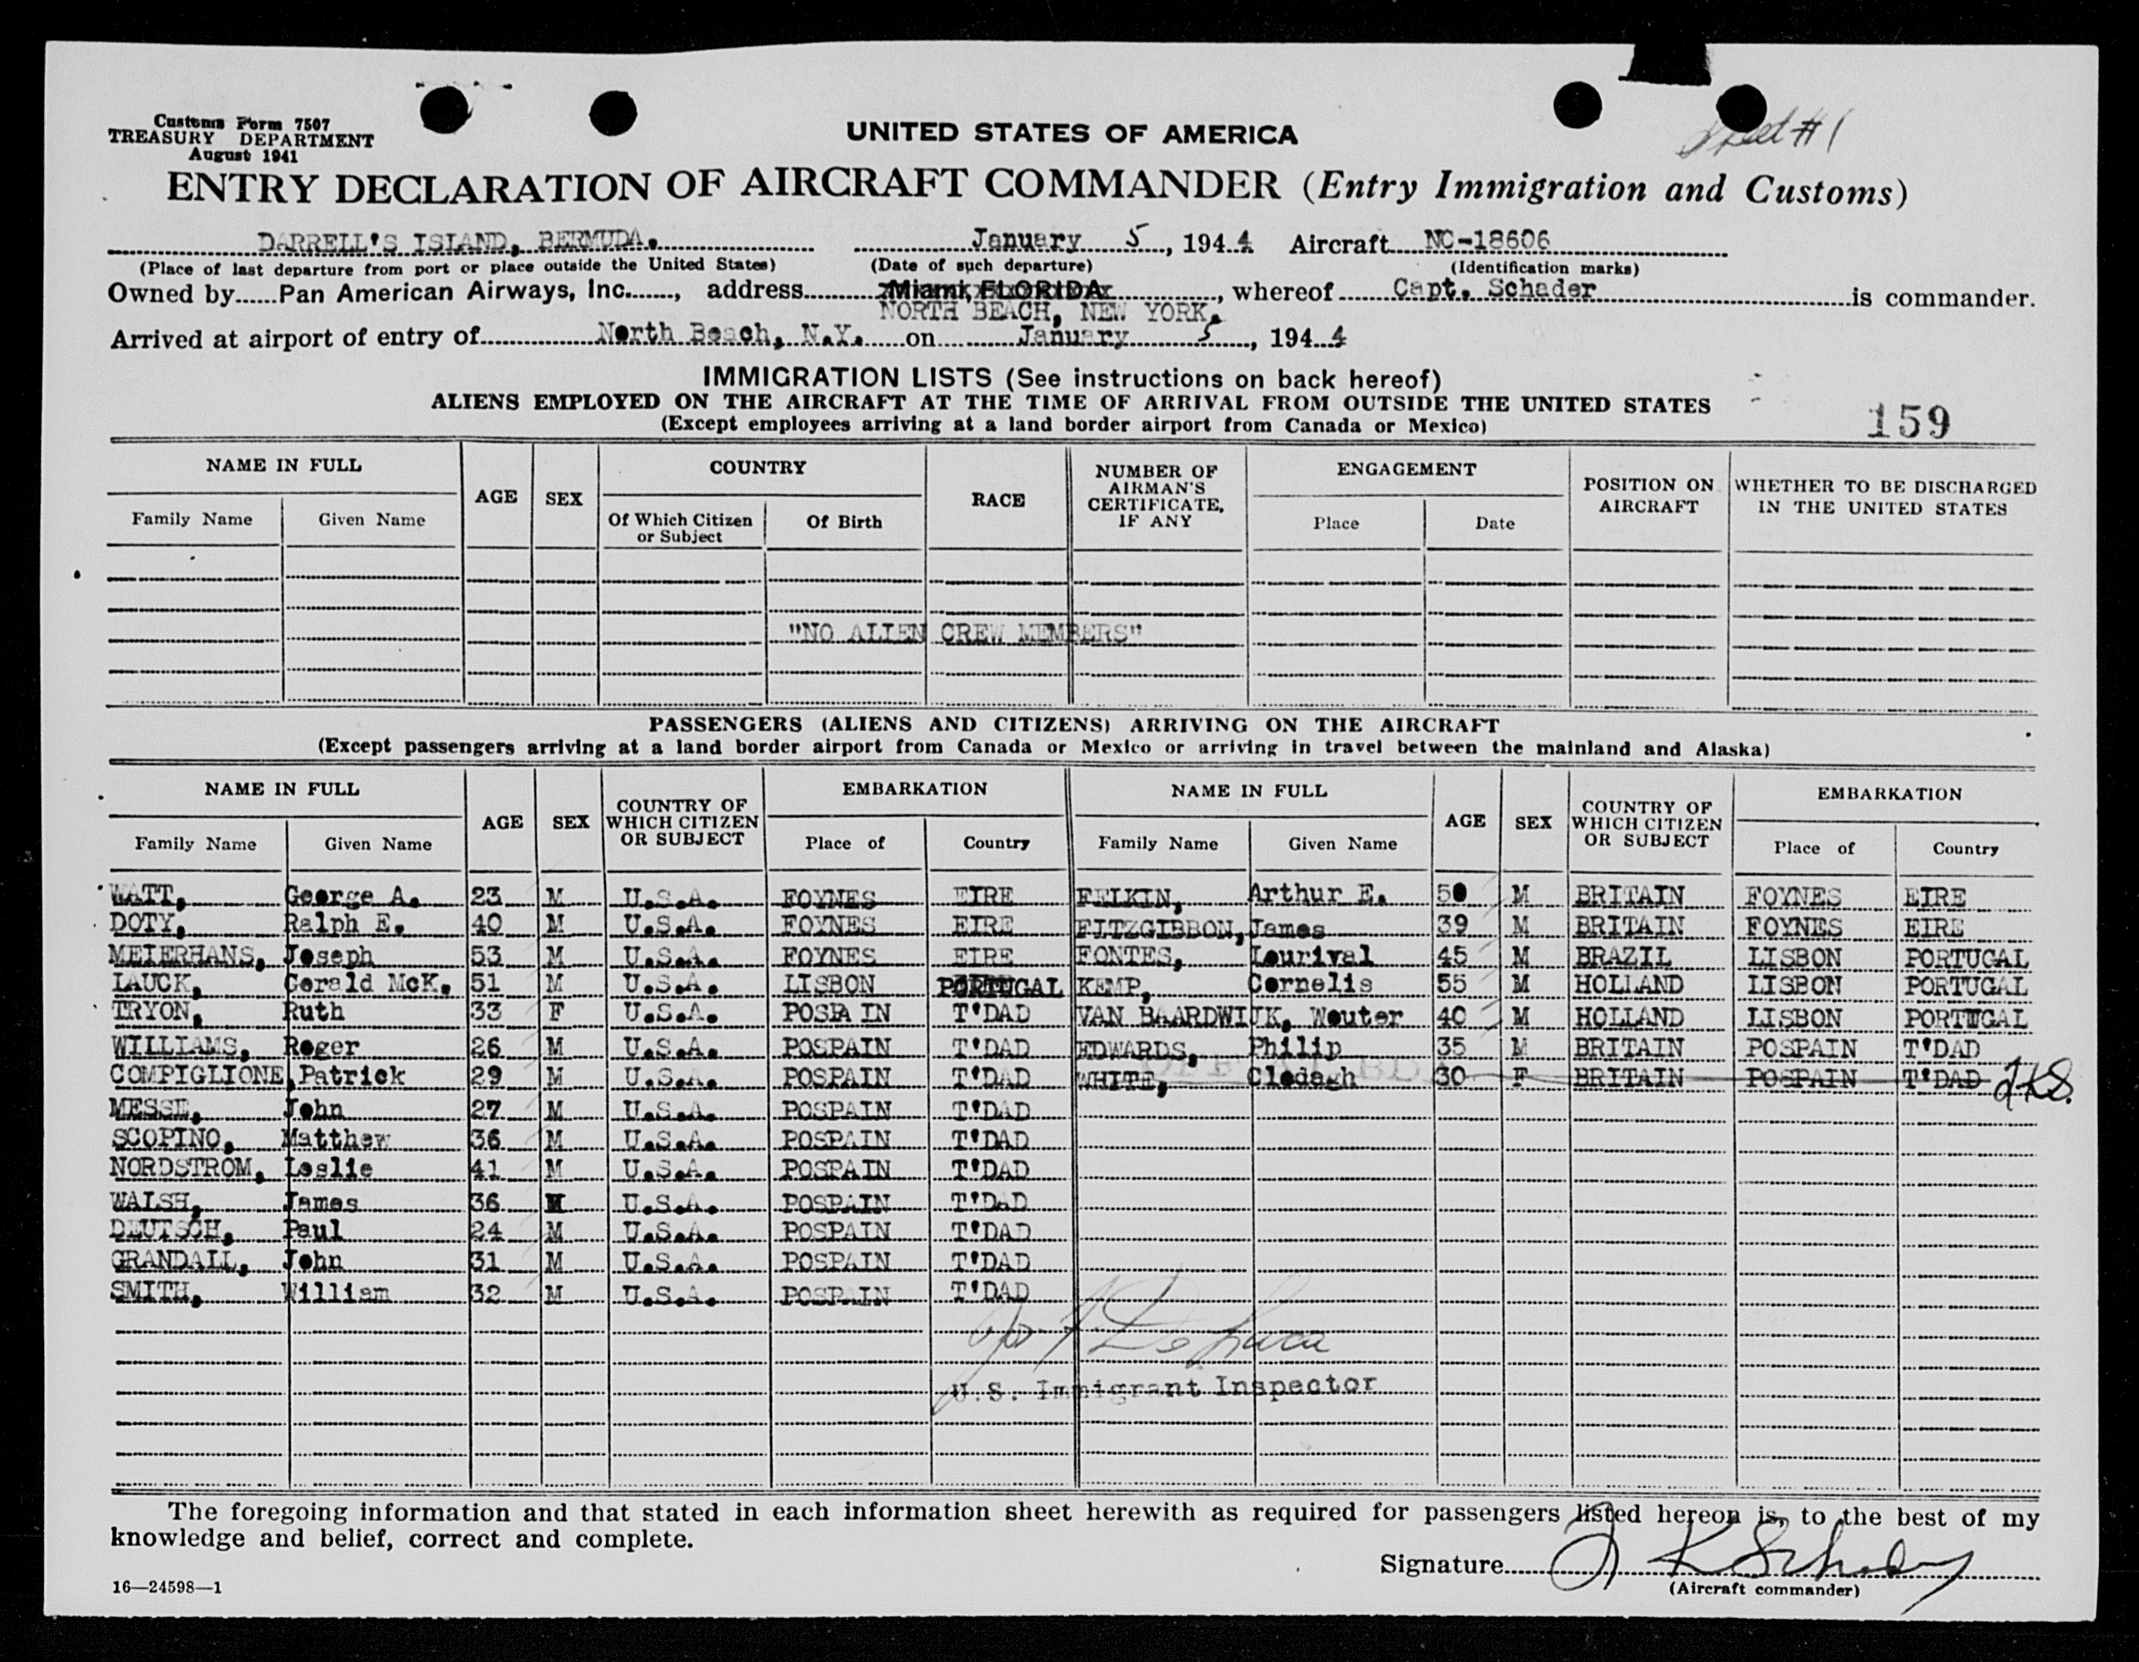 Customs Form 7507
TREASURY DEPARTMENT
August 1941
UNITED STATES OF AMERICA
Sheet #1
ENTRY DECLARATION OF AIRCRAFT COMMANDER (Entry Immigration and Customs)
DARRELL'S ISLAND, BERMUDA. January 5, 1944 Aircraft NC-18606
(Place of last departure from port or place outside the United States) (Date of such departure) (Identification marks)
Owned by Pan American Airways, Inc., address Miami, FLORIDA, whereof Capt. Schader is commander.
NORTH BEACH, NEW YORK.
Arrived at airport of entry of North Beach, N.Y. on January 5, 1944
IMMIGRATION LISTS (See instructions on back hereof)
ALIENS EMPLOYED ON THE AIRCRAFT AT THE TIME OF ARRIVAL FROM OUTSIDE THE UNITED STATES
(Except employees arriving at a land border airport from Canada or Mexico)
159
NAME IN FULL AGE SEX COUNTRY RACE NUMBER OF AIRMAN'S CERTIFICATE, IF ANY ENGAGEMENT POSITION ON AIRCRAFT WHETHER TO BE DISCHARGED IN THE UNITED STATES
Family Name Given Name Of Which Citizen or Subject Of Birth Place Date
"NO ALIEN CREW MEMBERS"
PASSENGERS (ALIENS AND CITIZENS) ARRIVING ON THE AIRCRAFT
(Except passengers arriving at a land border airport from Canada or Mexico or arriving in travel between the mainland and Alaska)
NAME IN FULL AGE SEX COUNTRY OF WHICH CITIZEN OR SUBJECT EMBARKATION NAME IN FULL AGE SEX COUNTRY OF WHICH CITIZEN OR SUBJECT EMBARKATION
Family Name Given Name Place of Country Family Name Given Name Place of Country
WATT, George A. 23 M U.S.A. FOYNES EIRE FELKIN, Arthur E. 50 M BRITAIN FOYNES EIRE
DOTY, Ralph E. 40 M U.S.A. FOYNES EIRE FITZGIBBON, James 39 M BRITAIN FOYNES EIRE
MEIERHANS, Joseph 53 M U.S.A. FOYNES EIRE FONTES, Lourival 45 M BRAZIL LISBON PORTUGAL
LAUCK, Gerald McK. 51 M U.S.A. LISBON PORTUGAL KEMP, Cornelis 55 M HOLLAND LISBON PORTUGAL
TRYON, Ruth 33 F U.S.A. POSPA IN T'DAD VAN BAARDWIJK, Wouter 40 M HOLLAND LISBON PORTUGAL
WILLIAMS, Roger 26 M U.S.A. POSPAIN T'DAD EDWARDS, Philip 35 M BRITAIN POSPAIN T'DAD
COMPIGLIONE, Patrick 29 M U.S.A. POSPAIN T'DAD WHITE, Clodagh 30 F BRITAIN POSPAIN T'DAD JKS.
MESSE, John 27 M U.S.A. POSPAIN T'DAD
SCOPINO, Matthew 36 M U.S.A. POSPAIN T'DAD
NORDSTROM, Leslie 41 M U.S.A. POSPAIN T'DAD
WALSH, James 36 M U.S.A. POSPAIN T'DAD
DEUTSCH, Paul 24 M U.S.A. POSPAIN T'DAD
GRANDALL, John 31 M U.S.A. POSPAIN T'DAD
SMITH, William 32 M U.S.A. POSPAIN T'DAD
U.S. Immigrant Inspector
The foregoing information and that stated in each information sheet herewith as required for passengers listed hereon is, to the best of my
knowledge and belief, correct and complete.
Signature J K Schader
(Aircraft commander)
16—24598—1